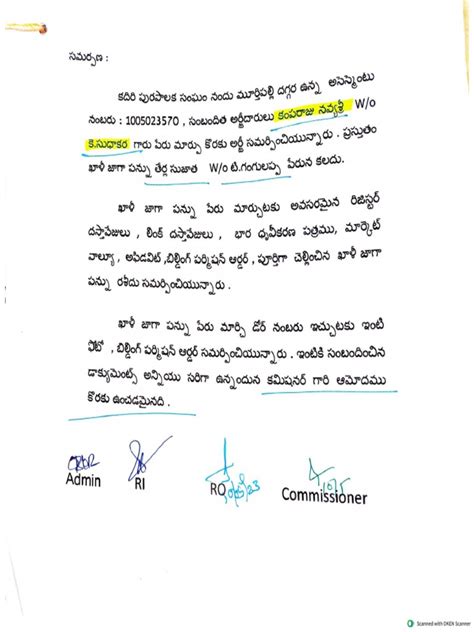 సమర్పణ :
కదిరి పురపాలక సంఘం నందు మూర్తిపల్లి దగ్గర ఉన్న అసెస్మెంటు
నంబరు : 1005023570 , సంబందిత అర్జీదారులు కంపరాజు నవ్యశ్రీ W/o
కె.సుధాకర గారు పేరు మార్పు కొరకు అర్జీ సమర్పించియున్నారు . ప్రస్తుతం
ఖాళీ జాగా పన్ను తేర్ల సుజాత W/o టి.గంగులప్ప పేరున కలదు.
ఖాళీ జాగా పన్ను పేరు మార్చుటకు అవసరమైన రిజిస్టర్
దస్తావేజులు , లింక్ దస్తావేజులు , భార ధృవీకరణ పత్రము, మార్కెట్
వాల్యూ , అఫిడవిట్ ,బిల్డింగ్ పర్మిషన్ ఆర్డర్ , పూర్తిగా చెల్లించిన ఖాళీ జాగా
పన్ను రశీదు సమర్పించియున్నారు .
ఖాళీ జాగా పన్ను పేరు మార్చి డోర్ నంబరు ఇచ్చుటకు ఇంటి
ఫోటో , బిల్డింగ్ పర్మిషన్ ఆర్డర్ సమర్పించియున్నారు . ఇంటికి సంబందించిన
డాక్యుమెంట్స్ అన్నియు సరిగా ఉన్నందున కమిషనర్ గారి ఆమోదము
కొరకు ఉంచడమైనది .
Admin RI RO Commissioner
Scanned with OKEN Scanner